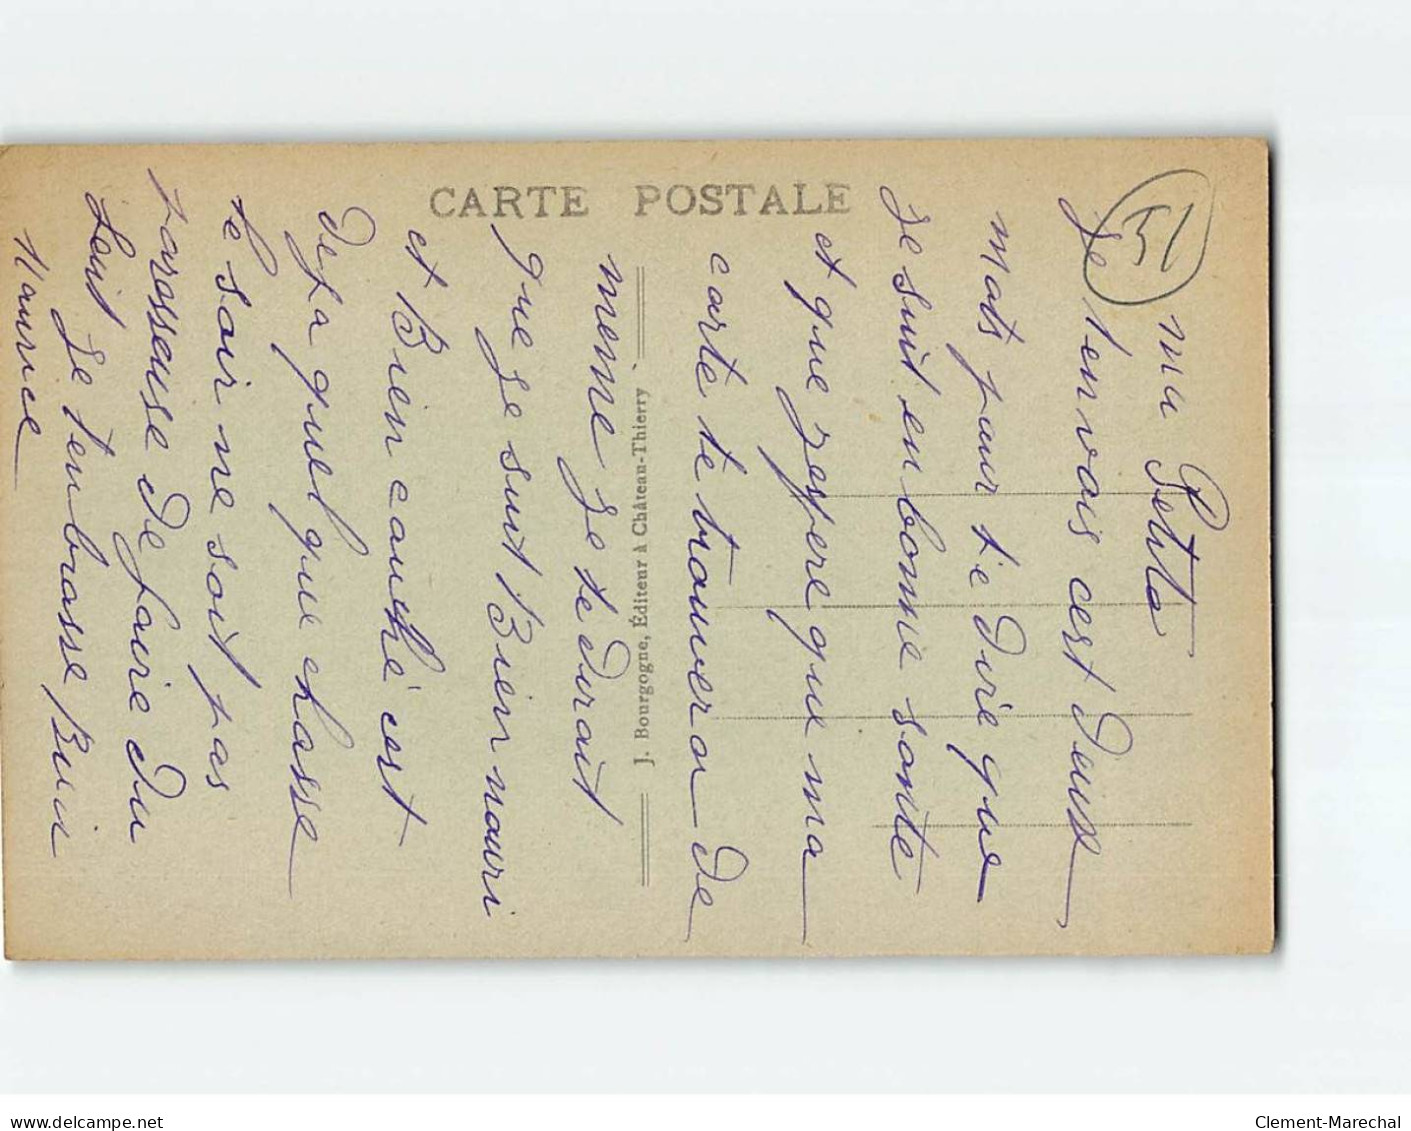 CARTE POSTALE
51
ma Petite
Je t'envois cest Deux
mots pour te Dire que
Je suit en bonne sante
et que j'espere que ma
carte te trouvera De
meme Je te Dirait
que Je suit Bien nouri
et Bien couché cest
Deja quelque chosse
le soir ne soit pas
parosseuse De faire Du
Je tembrasse Bien
Maurice
J. Bourgogne, Éditeur à Château-Thierry
delcampe.net
Clement-Marechal